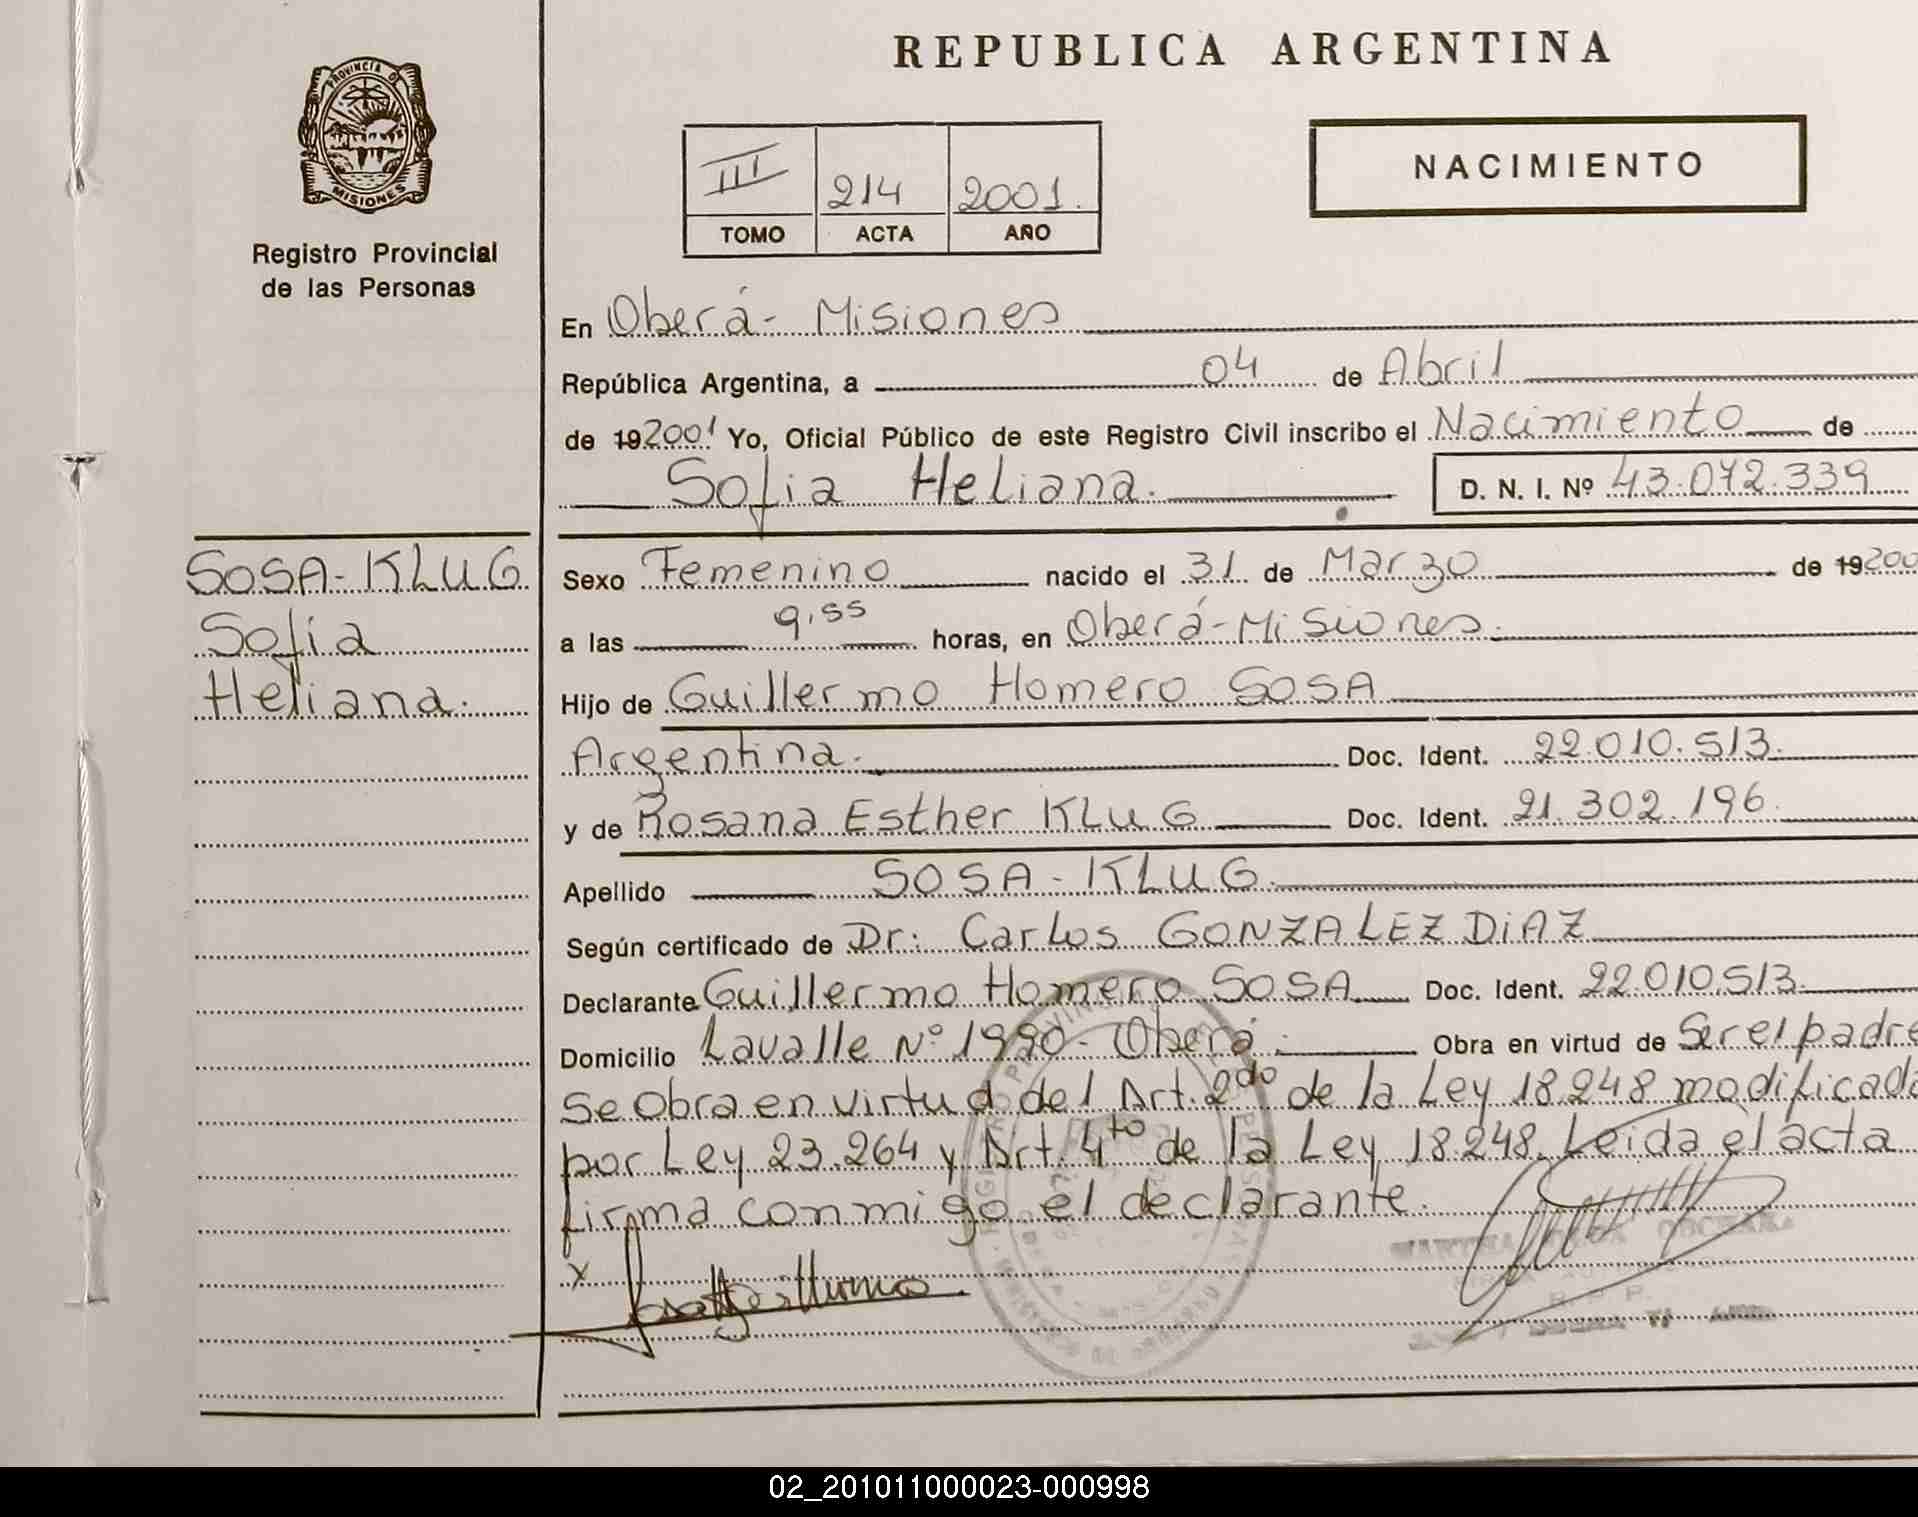 REPUBLICA ARGENTINA
PROVINCIA DE
MISIONES
Registro Provincial
de las Personas
III 214 2001.
TOMO ACTA AÑO
NACIMIENTO
En Oberá - Misiones
República Argentina, a 04 de Abril
de 19 2001 Yo, Oficial Público de este Registro Civil inscribo el Nacimiento de
Sofia Heliana. D. N. I. Nº 43.072.339
SOSA - KLUG
Sofia
Heliana.
Sexo Femenino nacido el 31 de Marzo de 19 200
a las 9,55 horas, en Oberá - Misiones.
Hijo de Guillermo Homero SOSA
Argentina. Doc. Ident. 22.010.513.
y de Rosana Esther KLUG Doc. Ident. 21.302.196.
Apellido SOSA - KLUG.
Según certificado de Dr: Carlos GONZALEZ DiAZ
Declarante Guillermo Homero SOSA Doc. Ident. 22.010.513.
Domicilio Lavalle Nº 1990 - Oberá. Obra en virtud de Ser el padre
Se Obra en virtud del Art. 2do de la Ley 18.248 modificada
por Ley 23.264 y Art. 4to de la Ley 18.248. Leida el acta
firma conmigo el declarante.
x
02_201011000023-000998